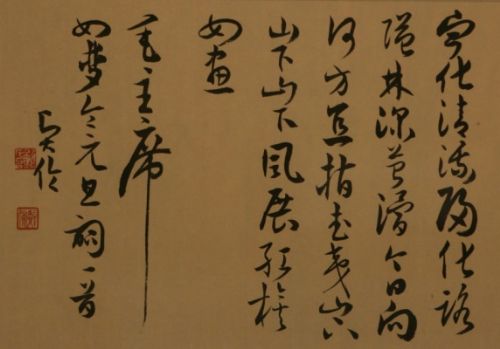 宁化清流歸化路
隘林深苔滑今日向
何方直指武夷山下
山下山下風展紅旗
如畫
毛主席
如夢令元旦詞一首